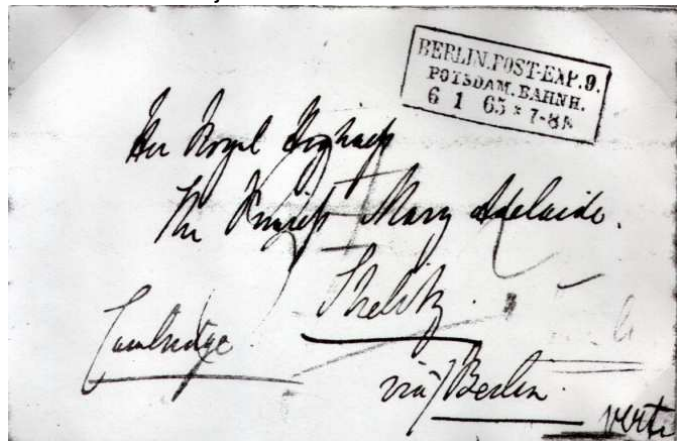 BERLIN.POST-EXP.9.
POTSDAM.BAHNH.
6 1 65 * 7-8N
Her Royal Highness
The Princess Mary Adelaide.
Strelitz.
Cambridge
via Berlin.